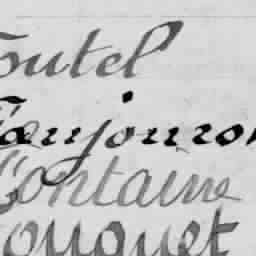 outel
Faujouron
Containe
ouquet